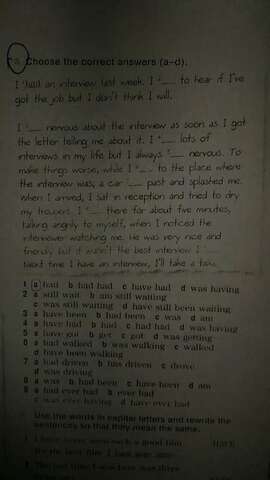 3 Choose the correct answers (a–d).
I ¹had an interview last week. I ²___ to hear if I've
got the job but I don't think I will.
I ³___ nervous about the interview as soon as I got
the letter telling me about it. I ⁴___ lots of
interviews in my life but I always ⁵___ nervous. To
make things worse, while I ⁶___ to the place where
the interview was, a car ⁷___ past and splashed me.
When I arrived, I sat in reception and tried to dry
my trousers. I ⁸___ there for about five minutes,
talking angrily to myself, when I noticed the
interviewer watching me. He was very nice and
friendly but it wasn't the best interview I ___
Next time I have an interview, I'll take a taxi.
1 a had b had had c have had d was having
2 a still wait b am still waiting
c was still waiting d have still been waiting
3 a have been b had been c was d am
4 a have had b had c had had d was having
5 a have got b get c got d was getting
6 a had walked b was walking c walked
d have been walking
7 a had driven b has driven c drove
d was driving
8 a was b had been c have been d am
9 a had ever had b ever had
c was ever having d have ever had
Use the words in capital letters and rewrite the
sentences so that they mean the same.
1 I have never seen such a good film